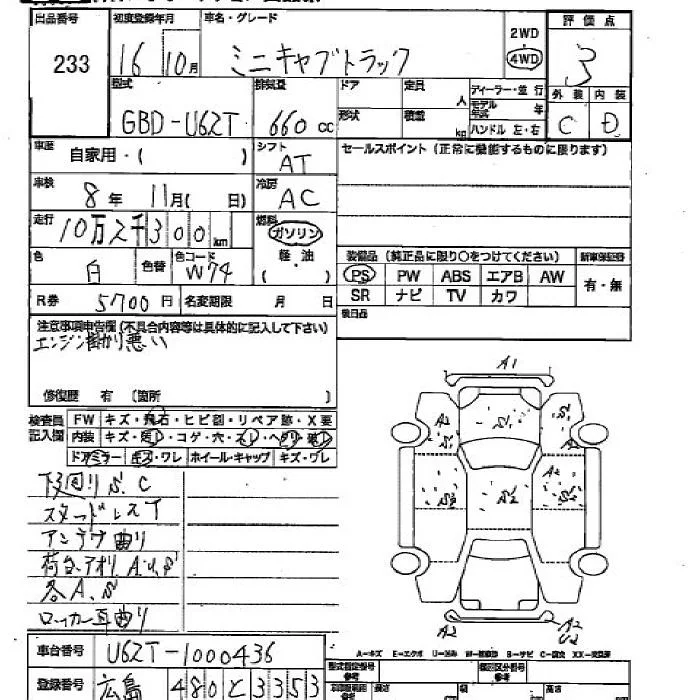 出品番号 初度登録年月 車名・グレード 評価点
233 16 10月 ミニキャブトラック 2WD 4WD 3
型式 排気量 ドア 定員 人 ディーラー・並行 外装 内装
GBD-U62T 660cc 形状 積載 kg モデル年式 年 C D
ハンドル 左・右
車歴 自家用・( ) シフト AT セールスポイント(正常に機能するものに限ります)
車検 8年 11月( 日) 冷房 AC
走行 10万2千300km 燃料 ガソリン
軽油
( )
色 白 色替 色コード W74 装備品(純正品に限り○をつけてください) 新車保証書
PS PW ABS エアB AW 有・無
R券 5700円 名変期限 月 日 SR ナビ TV カワ
後日品
注意事項申告欄(不具合内容等は具体的に記入して下さい)
エンジン掛かり悪い
修復歴 有 〔箇所 〕
検査員 FW キズ・飛石・ヒビ割・リペア跡・X要
記入欄 内装 キズ・コゲ・穴・スレ・ヘタリ
ドアミラー キズ・ワレ ホイール・キャップ キズ・ワレ
下回りS.C
スタッドレスT
アンテナ曲り
荷台アオリA.U.S
各A.S
ロッカー耳曲り
A1
A2 S1 S1 A2
S3 S2 A2 S2
A2 A2
U2
A-キズ E-エクボ U-凹み W-補修跡 S-サビ C-腐食 XX-交換済
車台番号 U62T-1000436 型式指定番号 類別区分番号
参考 参考
登録番号 広島 480 と 3353 長さ 幅 高さ